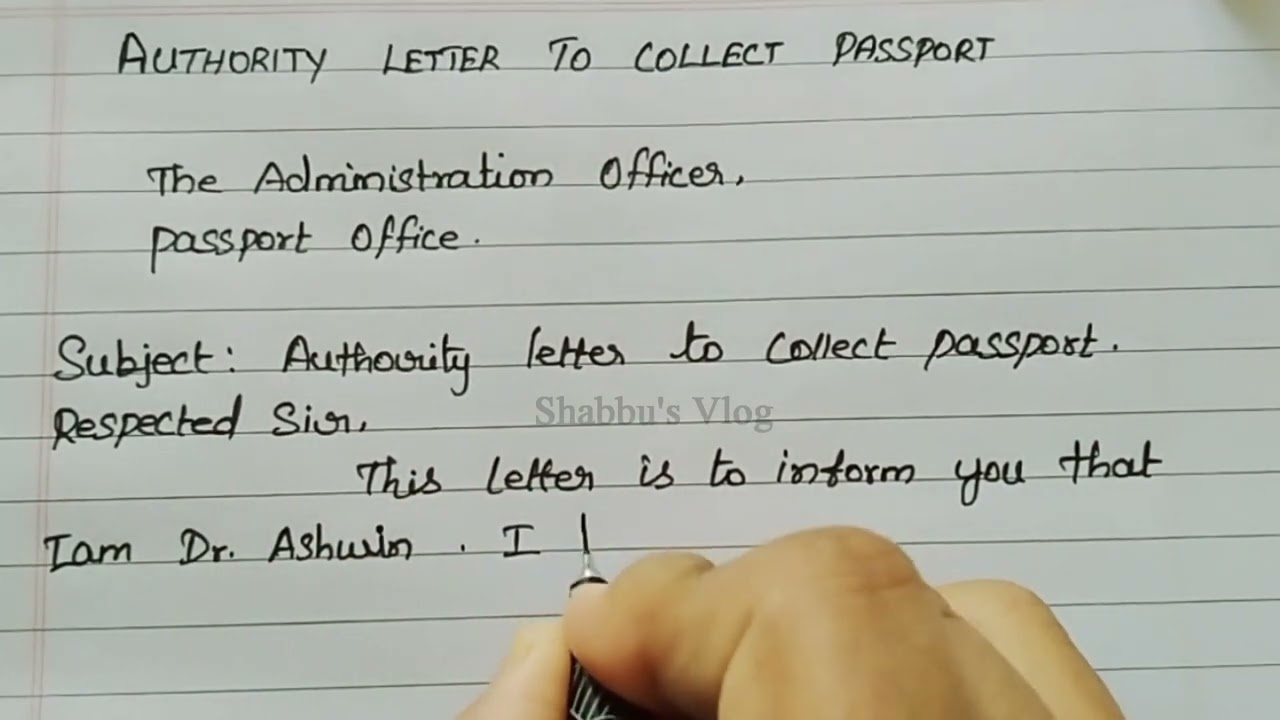 AUTHORITY LETTER TO COLLECT PASSPORT
The Administration Officer,
Passport Office.
Subject: Authority letter to collect passport.
Respected Sir,
Shabbu's Vlog
This letter is to inform you that
I am Dr. Ashwin. I